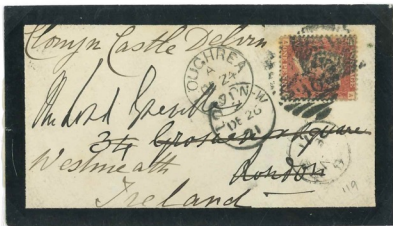 Clonyn Castle Delvin
LOUGHREA
A
24
91
LONDON-W
DE 26
91
The Lord Greville
34 Grosvenor Square
London
Westmeath
Ireland